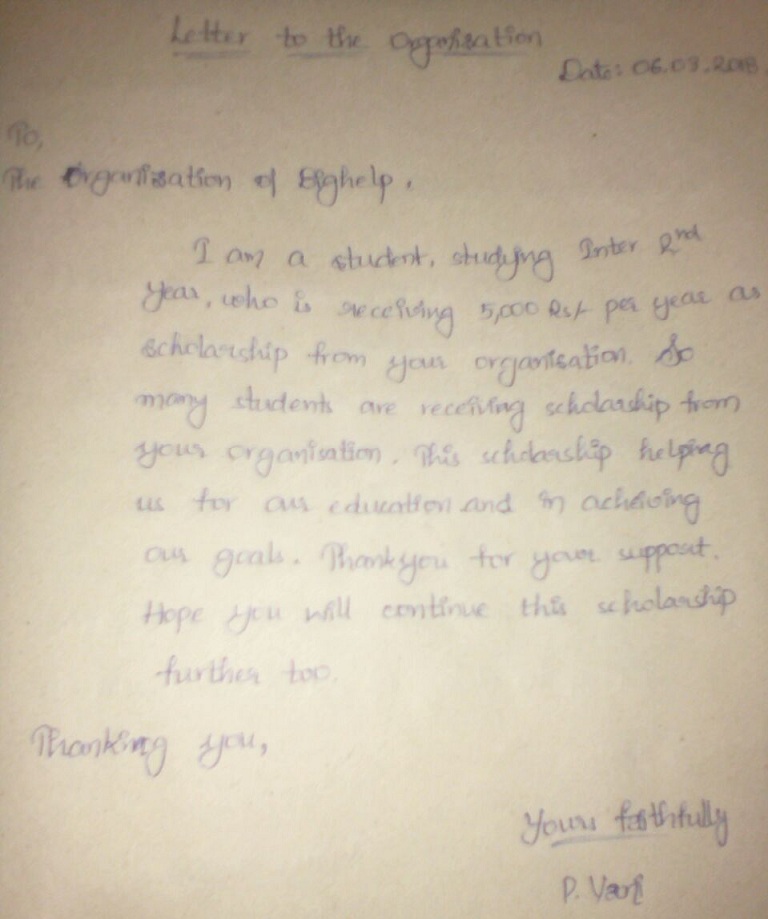 Letter to the Organisation
Date: 06.03.2018
To,
The Organization of Bighelp.
I am a student, studying Inter 2nd
Year, who is receiving 5,000 Rs/- per year as
scholarship from your organisation. So
many students are receiving scholarship from
your organisation. This scholarship helping
us for our education and in acheiving
our goals. Thankyou for your support.
Hope you will continue this scholarship
further too.
Thanking you,
Yours faithfully
P.